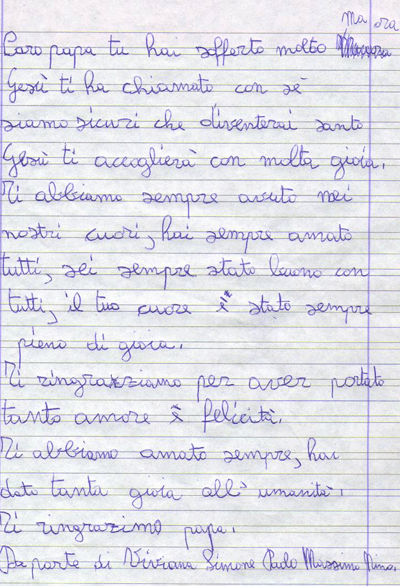 Ma ora
Caro papa tu hai sofferto molto
Gesù ti ha chiamato con sè
siamo sicuri che diventerai santo
Gesù ti accoglierà con molta gioia.
Ti abbiamo sempre avuto nei
nostri cuori, hai sempre amato
tutti, sei sempre stato buono con
tutti, il tuo cuore è stato sempre
pieno di gioia.
Ti ringraziamo per aver portato
tanto amore e felicità.
Ti abbiamo amato sempre, hai
dato tanta gioia all' umanità.
Ti ringrazimo papa.
Da parte di Viviana Simone Paolo Massimo